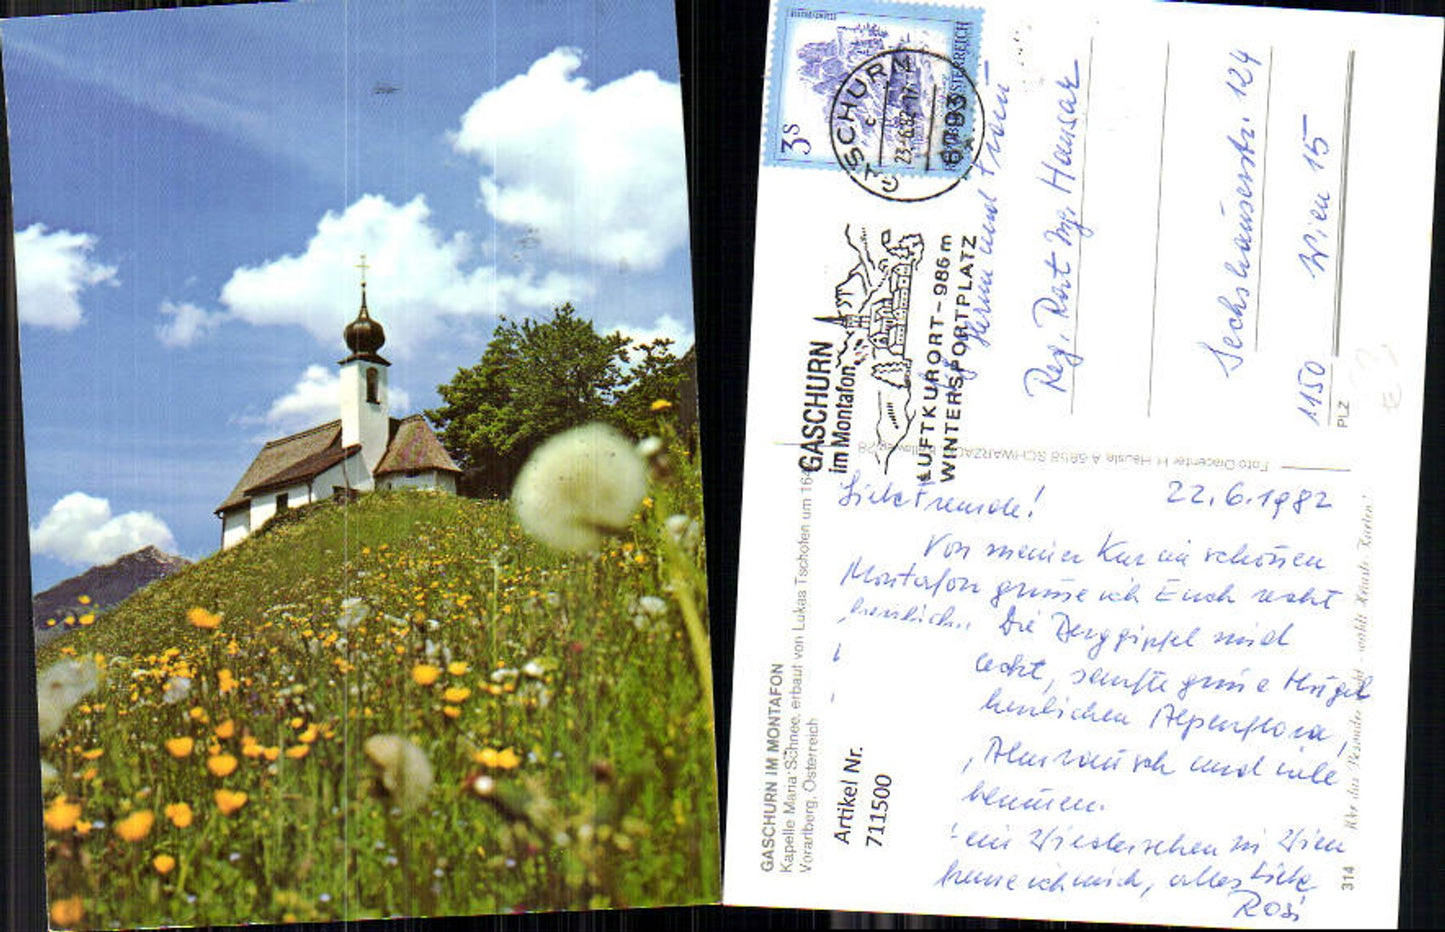 3 S
ÖSTERREICH
GASCHURN
23.-6.82-17
6793
GASCHURN
im Montafon
LUFTKURORT-986m
WINTERSPORTPLATZ
Herrn und Frau
Reg. Rat Ing. Hausar
Sechshauserstr. 124
1150 Wien 15
PLZ
Foto Diacenter H. Häusle A 6858 SCHWARZACH
22.6.1982
Liebe Freunde!
Von meiner Kur im schönen
Montafon grüsse ich Euch recht
herzlich. Die Berggipfel sind
sanfte grüne Hügel
herrlichen Alpenflora,
Almrausch und viele
ein Wiedersehen in Wien
freue ich mich, alles Liebe
Rosi
GASCHURN IM MONTAFON
Kapelle Maria Schnee, erbaut von Lukas Tschofen um 164
Vorarlberg, Österreich
Artikel Nr.
711500
314
Wer das Besondere - wählt Häusle-Karten!